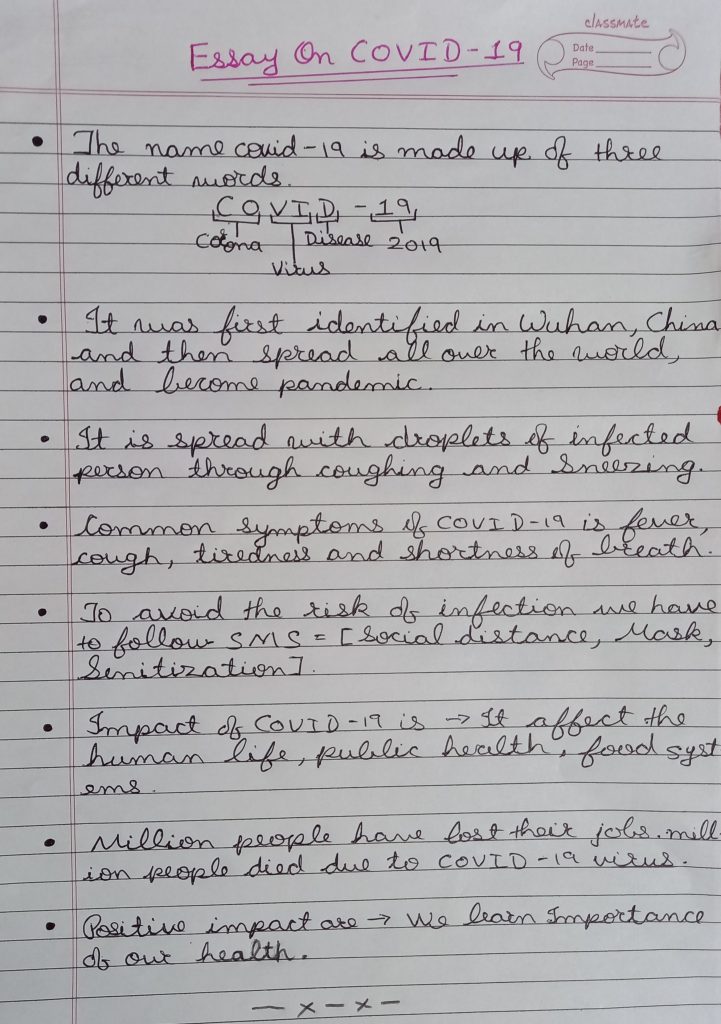 classmate
Date
Page
Essay On COVID-19
• The name covid-19 is made up of three
different words.
COVID-19
Corona Disease 2019
Virus
• It was first identified in Wuhan, China
and then spread all over the world,
and become pandemic.
• It is spread with droplets of infected
person through coughing and Sneezing.
• Common symptoms of COVID-19 is fever,
cough, tiredness and shortness of breath.
• To avoid the risk of infection we have
to follow SMS = [Social distance, Mask,
Senitization].
• Impact of COVID-19 is → It affect the
human life, public health, food syst
ems.
• Million people have lost their jobs. mill-
ion people died due to COVID-19 virus.
• Positive impact are → We learn Importance
of our health.
— x — x —